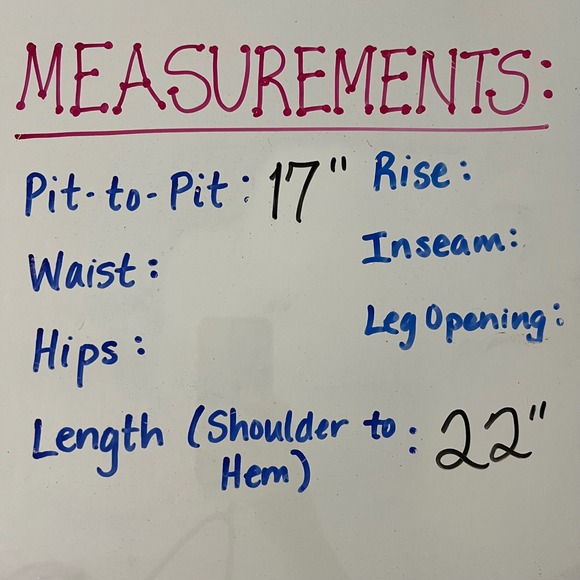 MEASUREMENTS:
Pit-to-Pit: 17"
Rise:
Waist:
Inseam:
Hips:
Leg Opening:
Length (Shoulder to : 22"
Hem)